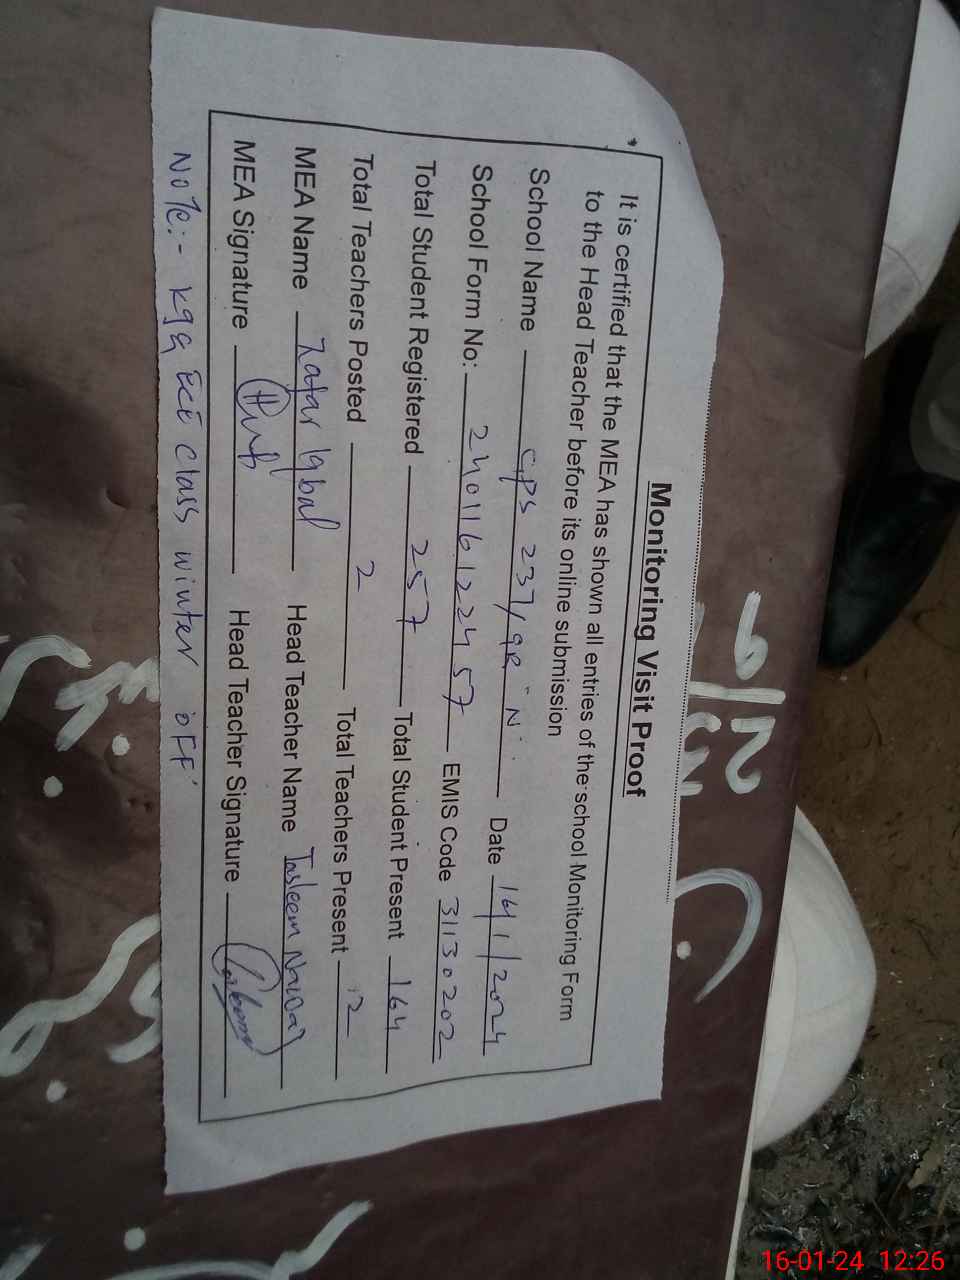 Monitoring Visit Proof
It is certified that the MEA has shown all entries of the school Monitoring Form
to the Head Teacher before its online submission
School Name GPS 237/9R "N" Date 16/1/2024
School Form No: 2401161222457 EMIS Code 31130202
Total Student Registered 257 Total Student Present 164
Total Teachers Posted 2 Total Teachers Present 2
MEA Name Zafar Iqbal Head Teacher Name Tasleem Nawaz
MEA Signature Head Teacher Signature
Note:- Kg & ECE Class winter OFF
16-01-24 12:26